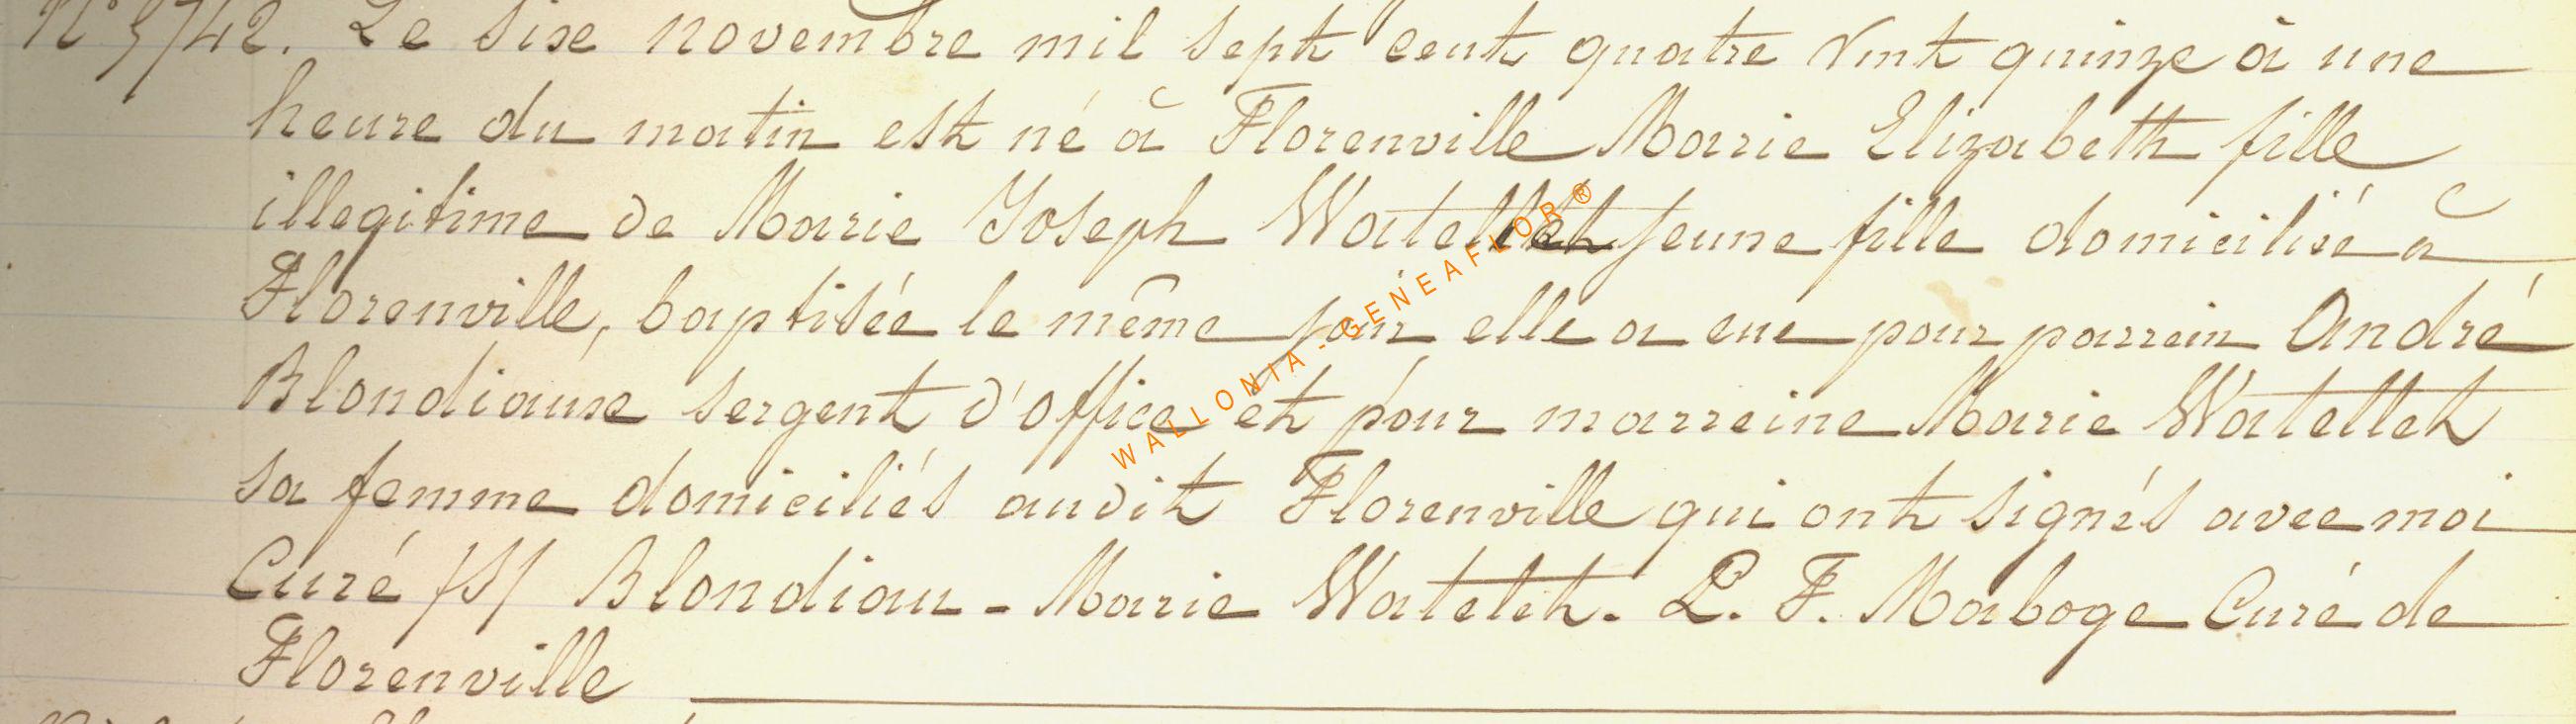 N° 5742. Le sixe novembre mil sept cent quatre vint quinze à une
heure du matin est né à Florenville Marie Elizabeth fille
illegitime de Marie Joseph Watellet jeune fille domiciliée à
Florenville, baptisée le même jour elle a eue pour parrein André
Blondiaux sergent d'office et pour marreine Marie Watellet
sa femme domiciliés audit Florenville qui ont signés avec moi
Curé /S/ Blondiau - Marie Watelet. L. F. Maboge Curé de
Florenville
WALLONIA - GENEAFLOR ®